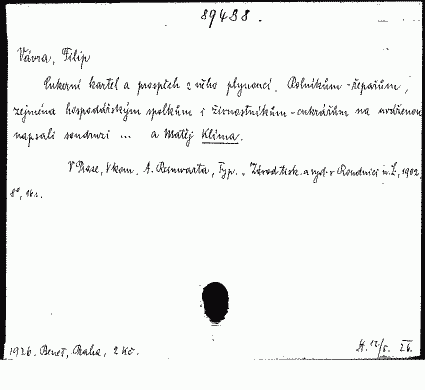 89488.
Vávra, Filip
Cukerní kartel a prospěch z něho plynoucí. Rolníkům-řepařům,
zejména hospodářským spolkům i živnostníkům-cukrářům na uváženou
napsali soudruzi ... a Matěj Klíma.
V Praze, V kom. A. Reinwarta, Typ. „Závod tisk. a vyd. v Roudnici n. L., 1902
8°, 16 s.
1926. Beneš, Praha, 2 Kč.
H. 12/5. 26.